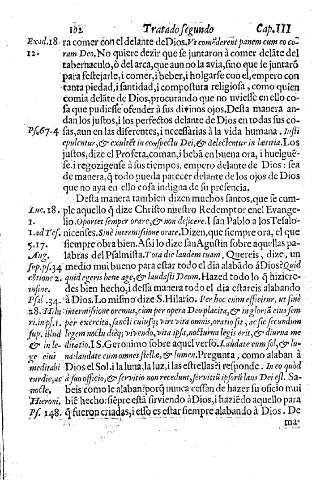 102 Tratado segundo Cap. III
Exod. 18.
12.
ra comer con el delante de Dios. Vt comederent panem cum eo co-
ram Deo. No quiere dezir que se juntaron à comer delãte del
tabernaculo, ò del arca, que aun no la avia, sino que se juntarõ
para festejarle, i comer, i beber, i holgarse con el, empero con
tanta piedad, i santidad, i compostura religiosa, como quien
comia delãte de Dios, procurando que no uviesse en ello co-
sa que pudiesse ofender à sus divinos ojos. Desta manera an-
dan los justos, i los perfectos delante de Dios en todas sus co-
Ps. 67.4
sas, aun en las diferentes, i necessarias à la vida humana. Iusti
epulentur, & exultēt in conspectu Dei, & delectentur in lætitia. Los
justos, dize el Profeta, coman, i bebã en buena ora, i huelguē-
se, i regozigense à sus tiempos, empero delante de Dios: sea
de manera, q̃ todo pueda parecer delante de los ojos de Dios
que no aya en ello cosa indigna de su presencia.
Desta manera tambien dizen muchos santos, que se cum-
Luc. 18.
1.
ple aquello q̃ dize Christo nuestro Redemptor en el Evange-
lio. Oportet semper orare, & non deficere. I san Pablo a los Tesalo-
1. ad Tes.
5. 17.
nicenses. Sine intermissione orate. Dizen, que siempre ora, el que
siempre obra bien. Assi lo dize san Agustin sobre aquellas pa-
Aug.
sup. ps. 34
labras del Psalmista. Tota die laudem tuam, Quereis, dize, un
medio mui bueno para estar todo el dia alabãdo à Dios? Quid
quid egeris bene age, & laudasti Deum. Haced todo lo q̃ hiziere-
des bien hecho, i dessa manera todo el dia estareis alabando
Psal. 34.
28. Hila-
à Dios. Lo mismo dize S. Hilario. Per hoc enim efficitur, ut sine
intermissione oremus, cum per opera Deo placita, & in gloriã eius sem
per exercita, sancti cuiusq; viri vita omnis, oratio fit, ac sic secundum
legem nocte dieq; vivendo, vita ipsa, nocturna legis erit, & diurna me
ditatio. I S. Geronimo sobre aquel verso. Laudate eum sol, & lu-
na: laudate eum omnes stellæ, & lumen. Pregunta, como alaban à
Dios el Sol, i la luna, la luz, i las estrellas? i responde. In eo quod
à suo officio, & servitio non recedunt, servitiũ ipsorũ laus Dei est. Sa-
beis como le alaban? porq̃ nunca cessan de hazer su oficio mui
Hieroni.
biē hecho: siēpre estã sirviendo à Dios, i haziēdo aquello para
Ps. 148.
q̃ fueron criadas, i esso es estar siempre alabando à Dios. De
ma-